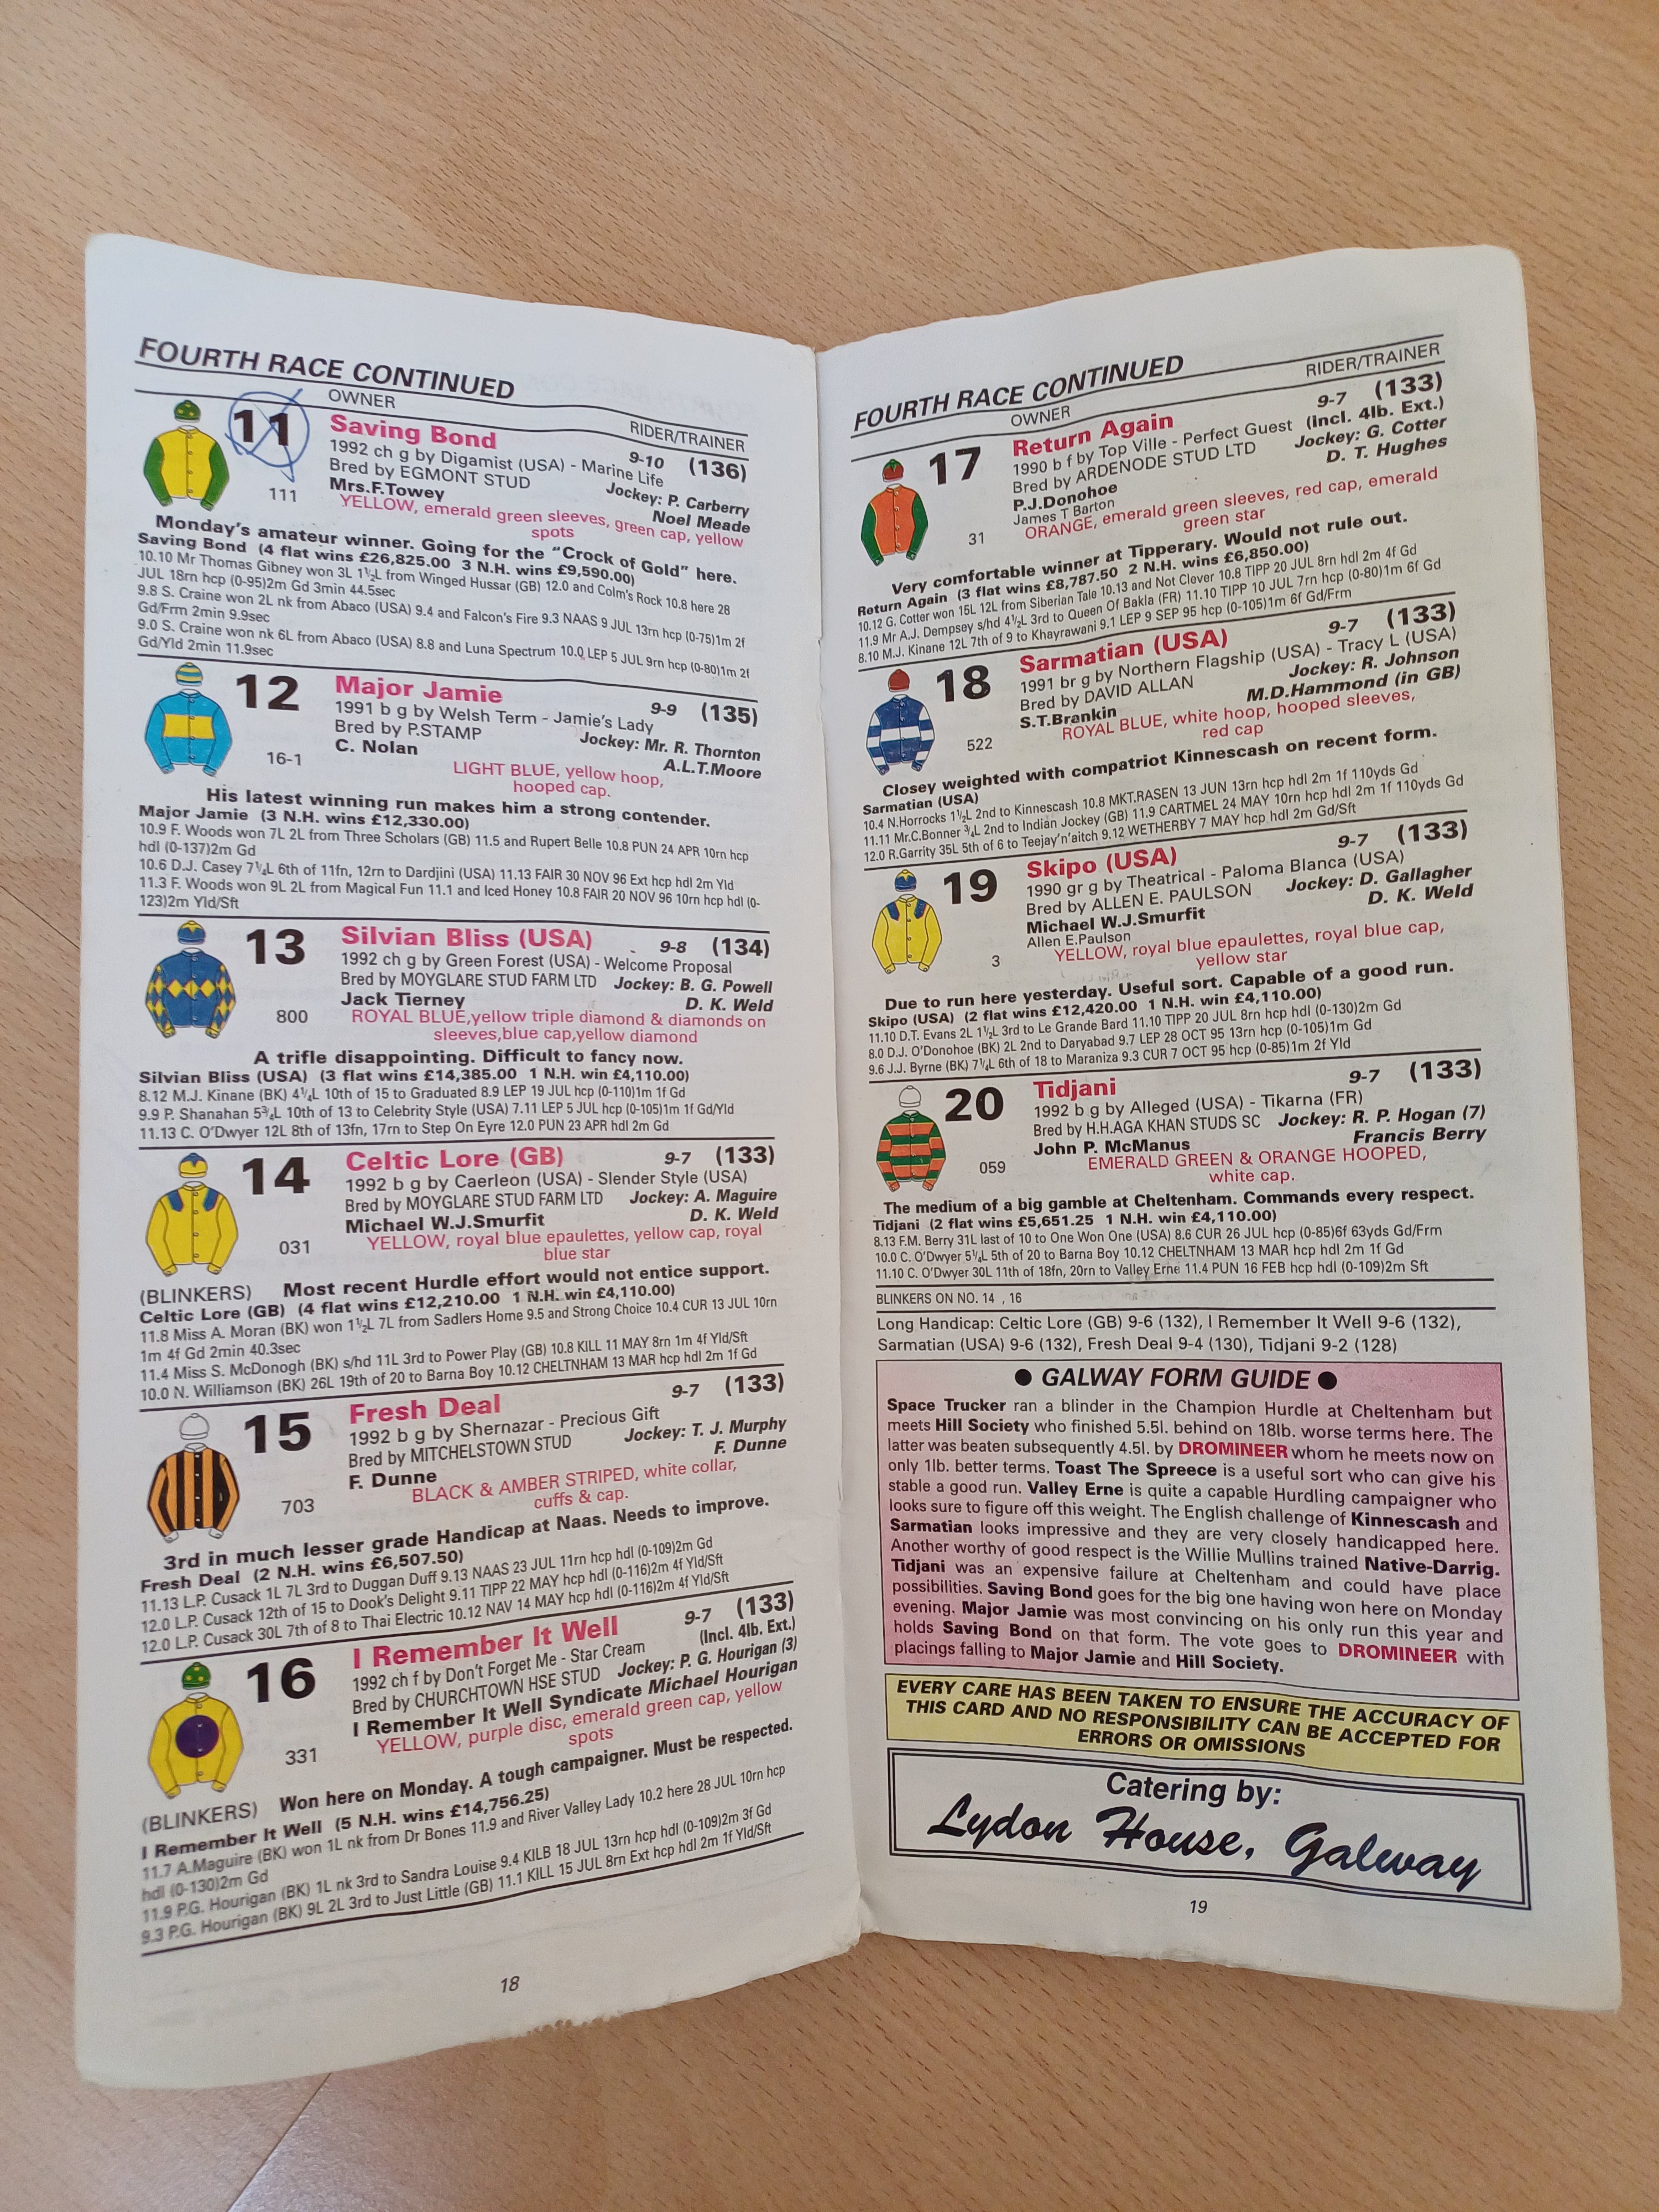 FOURTH RACE CONTINUED
OWNER
RIDER/TRAINER
11
Saving Bond
9-10 (136)
1992 ch g by Digamist (USA) - Marine Life
Bred by EGMONT STUD
Jockey: P. Carberry
Mrs.F.Towey
Noel Meade
111
YELLOW, emerald green sleeves, green cap, yellow
spots
Monday's amateur winner. Going for the "Crock of Gold" here.
Saving Bond (4 flat wins £26,825.00 3 N.H. wins £9,590.00)
10.10 Mr Thomas Gibney won 3L 1½L from Winged Hussar (GB) 12.0 and Colm's Rock 10.8 here 28
JUL 18rn hcp (0-95)2m Gd 3min 44.5sec
9.8 S. Craine won 2L nk from Abaco (USA) 9.4 and Falcon's Fire 9.3 NAAS 9 JUL 13rn hcp (0-75)1m 2f
Gd/Frm 2min 9.9sec
9.0 S. Craine won nk 6L from Abaco (USA) 8.8 and Luna Spectrum 10.0 LEP 5 JUL 9rn hcp (0-80)1m 2f
Gd/Yld 2min 11.9sec
12
Major Jamie
9-9 (135)
1991 b g by Welsh Term - Jamie's Lady
Bred by P.STAMP
Jockey: Mr. R. Thornton
C. Nolan
A.L.T.Moore
16-1
LIGHT BLUE, yellow hoop,
hooped cap.
His latest winning run makes him a strong contender.
Major Jamie (3 N.H. wins £12,330.00)
10.9 F. Woods won 7L 2L from Three Scholars (GB) 11.5 and Rupert Belle 10.8 PUN 24 APR 10rn hcp
hdl (0-137)2m Gd
10.6 D.J. Casey 7¼L 6th of 11fn, 12rn to Dardjini (USA) 11.13 FAIR 30 NOV 96 Ext hcp hdl 2m Yld
11.3 F. Woods won 9L 2L from Magical Fun 11.1 and Iced Honey 10.8 FAIR 20 NOV 96 10rn hcp hdl (0-
123)2m Yld/Sft
13
Silvian Bliss (USA)
9-8 (134)
1992 ch g by Green Forest (USA) - Welcome Proposal
Bred by MOYGLARE STUD FARM LTD Jockey: B. G. Powell
Jack Tierney
D. K. Weld
800
ROYAL BLUE,yellow triple diamond & diamonds on
sleeves,blue cap,yellow diamond
A trifle disappointing. Difficult to fancy now.
Silvian Bliss (USA) (3 flat wins £14,385.00 1 N.H. win £4,110.00)
8.12 M.J. Kinane (BK) 4¼L 10th of 15 to Graduated 8.9 LEP 19 JUL hcp (0-110)1m 1f Gd
9.9 P. Shanahan 5¾L 10th of 13 to Celebrity Style (USA) 7.11 LEP 5 JUL hcp (0-105)1m 1f Gd/Yld
11.13 C. O'Dwyer 12L 8th of 13fn, 17rn to Step On Eyre 12.0 PUN 23 APR hdl 2m Gd
14
Celtic Lore (GB)
9-7 (133)
1992 b g by Caerleon (USA) - Slender Style (USA)
Bred by MOYGLARE STUD FARM LTD Jockey: A. Maguire
Michael W.J.Smurfit
D. K. Weld
031
YELLOW, royal blue epaulettes, yellow cap, royal
blue star
(BLINKERS) Most recent Hurdle effort would not entice support.
Celtic Lore (GB) (4 flat wins £12,210.00 1 N.H. win £4,110.00)
11.8 Miss A. Moran (BK) won 1½L 7L from Sadlers Home 9.5 and Strong Choice 10.4 CUR 13 JUL 10rn
1m 4f Gd 2min 40.3sec
11.4 Miss S. McDonogh (BK) s/hd 11L 3rd to Power Play (GB) 10.8 KILL 11 MAY 8rn 1m 4f Yld/Sft
10.0 N. Williamson (BK) 26L 19th of 20 to Barna Boy 10.12 CHELTNHAM 13 MAR hcp hdl 2m 1f Gd
15
Fresh Deal
9-7 (133)
1992 b g by Shernazar - Precious Gift
Bred by MITCHELSTOWN STUD
Jockey: T. J. Murphy
F. Dunne
F. Dunne
703
BLACK & AMBER STRIPED, white collar,
cuffs & cap.
3rd in much lesser grade Handicap at Naas. Needs to improve.
Fresh Deal (2 N.H. wins £6,507.50)
11.13 L.P. Cusack 1L 7L 3rd to Duggan Duff 9.13 NAAS 23 JUL 11rn hcp hdl (0-109)2m Gd
12.0 L.P. Cusack 12th of 15 to Dook's Delight 9.11 TIPP 22 MAY hcp hdl (0-116)2m 4f Yld/Sft
12.0 L.P. Cusack 30L 7th of 8 to Thai Electric 10.12 NAV 14 MAY hcp hdl (0-116)2m 4f Yld/Sft
16
I Remember It Well
9-7 (133)
(Incl. 4lb. Ext.)
1992 ch f by Don't Forget Me - Star Cream
Bred by CHURCHTOWN HSE STUD Jockey: P. G. Hourigan (3)
I Remember It Well Syndicate Michael Hourigan
331
YELLOW, purple disc, emerald green cap, yellow
spots
(BLINKERS) Won here on Monday. A tough campaigner. Must be respected.
I Remember It Well (5 N.H. wins £14,756.25)
11.7 A.Maguire (BK) won 1L nk from Dr Bones 11.9 and River Valley Lady 10.2 here 28 JUL 10rn hcp
hdl (0-130)2m Gd
11.9 P.G. Hourigan (BK) 1L nk 3rd to Sandra Louise 9.4 KILB 18 JUL 13rn hcp hdl (0-109)2m 3f Gd
9.3 P.G. Hourigan (BK) 9L 2L 3rd to Just Little (GB) 11.1 KILL 15 JUL 8rn Ext hcp hdl 2m 1f Yld/Sft
18
FOURTH RACE CONTINUED
OWNER
RIDER/TRAINER
17
Return Again
9-7 (133)
1990 b f by Top Ville - Perfect Guest (Incl. 4lb. Ext.)
Bred by ARDENODE STUD LTD
Jockey: G. Cotter
P.J.Donohoe
D. T. Hughes
James T Barton
31
ORANGE, emerald green sleeves, red cap, emerald
green star
Very comfortable winner at Tipperary. Would not rule out.
Return Again (3 flat wins £8,787.50 2 N.H. wins £6,850.00)
10.12 G. Cotter won 15L 12L from Siberian Tale 10.13 and Not Clever 10.8 TIPP 20 JUL 8rn hdl 2m 4f Gd
11.9 Mr A.J. Dempsey s/hd 4½L 3rd to Queen Of Bakla (FR) 11.10 TIPP 10 JUL 7rn hcp (0-80)1m 6f Gd
8.10 M.J. Kinane 12L 7th of 9 to Khayrawani 9.1 LEP 9 SEP 95 hcp (0-105)1m 6f Gd/Frm
18
Sarmatian (USA)
9-7 (133)
1991 br g by Northern Flagship (USA) - Tracy L (USA)
Bred by DAVID ALLAN
Jockey: R. Johnson
S.T.Brankin
M.D.Hammond (in GB)
522
ROYAL BLUE, white hoop, hooped sleeves,
red cap
Closey weighted with compatriot Kinnescash on recent form.
Sarmatian (USA)
10.4 N.Horrocks 1½L 2nd to Kinnescash 10.8 MKT.RASEN 13 JUN 13rn hcp hdl 2m 1f 110yds Gd
11.11 Mr.C.Bonner ¾L 2nd to Indian Jockey (GB) 11.9 CARTMEL 24 MAY 10rn hcp hdl 2m 1f 110yds Gd
12.0 R.Garrity 35L 5th of 6 to Teejay'n'aitch 9.12 WETHERBY 7 MAY hcp hdl 2m Gd/Sft
19
Skipo (USA)
9-7 (133)
1990 gr g by Theatrical - Paloma Blanca (USA)
Bred by ALLEN E. PAULSON
Jockey: D. Gallagher
Michael W.J.Smurfit
D. K. Weld
Allen E.Paulson
3
YELLOW, royal blue epaulettes, royal blue cap,
yellow star
Due to run here yesterday. Useful sort. Capable of a good run.
Skipo (USA) (2 flat wins £12,420.00 1 N.H. win £4,110.00)
11.10 D.T. Evans 2L 1½L 3rd to Le Grande Bard 11.10 TIPP 20 JUL 8rn hcp hdl (0-130)2m Gd
8.0 D.J. O'Donohoe (BK) 2L 2nd to Daryabad 9.7 LEP 28 OCT 95 13rn hcp (0-105)1m Gd
9.6 J.J. Byrne (BK) 7¼L 6th of 18 to Maraniza 9.3 CUR 7 OCT 95 hcp (0-85)1m 2f Yld
20
Tidjani
9-7 (133)
1992 b g by Alleged (USA) - Tikarna (FR)
Bred by H.H.AGA KHAN STUDS SC Jockey: R. P. Hogan (7)
John P. McManus
Francis Berry
059
EMERALD GREEN & ORANGE HOOPED,
white cap.
The medium of a big gamble at Cheltenham. Commands every respect.
Tidjani (2 flat wins £5,651.25 1 N.H. win £4,110.00)
8.13 F.M. Berry 31L last of 10 to One Won One (USA) 8.6 CUR 26 JUL hcp (0-85)6f 63yds Gd/Frm
10.0 C. O'Dwyer 5¼L 5th of 20 to Barna Boy 10.12 CHELTNHAM 13 MAR hcp hdl 2m 1f Gd
11.10 C. O'Dwyer 30L 11th of 18fn, 20rn to Valley Erne 11.4 PUN 16 FEB hcp hdl (0-109)2m Sft
BLINKERS ON NO. 14 , 16
Long Handicap: Celtic Lore (GB) 9-6 (132), I Remember It Well 9-6 (132),
Sarmatian (USA) 9-6 (132), Fresh Deal 9-4 (130), Tidjani 9-2 (128)
● GALWAY FORM GUIDE ●
Space Trucker ran a blinder in the Champion Hurdle at Cheltenham but
meets Hill Society who finished 5.5l. behind on 18lb. worse terms here. The
latter was beaten subsequently 4.5l. by DROMINEER whom he meets now on
only 1lb. better terms. Toast The Spreece is a useful sort who can give his
stable a good run. Valley Erne is quite a capable Hurdling campaigner who
looks sure to figure off this weight. The English challenge of Kinnescash and
Sarmatian looks impressive and they are very closely handicapped here.
Another worthy of good respect is the Willie Mullins trained Native-Darrig.
Tidjani was an expensive failure at Cheltenham and could have place
possibilities. Saving Bond goes for the big one having won here on Monday
evening. Major Jamie was most convincing on his only run this year and
holds Saving Bond on that form. The vote goes to DROMINEER with
placings falling to Major Jamie and Hill Society.
EVERY CARE HAS BEEN TAKEN TO ENSURE THE ACCURACY OF
THIS CARD AND NO RESPONSIBILITY CAN BE ACCEPTED FOR
ERRORS OR OMISSIONS
Catering by:
Lydon House, Galway
19